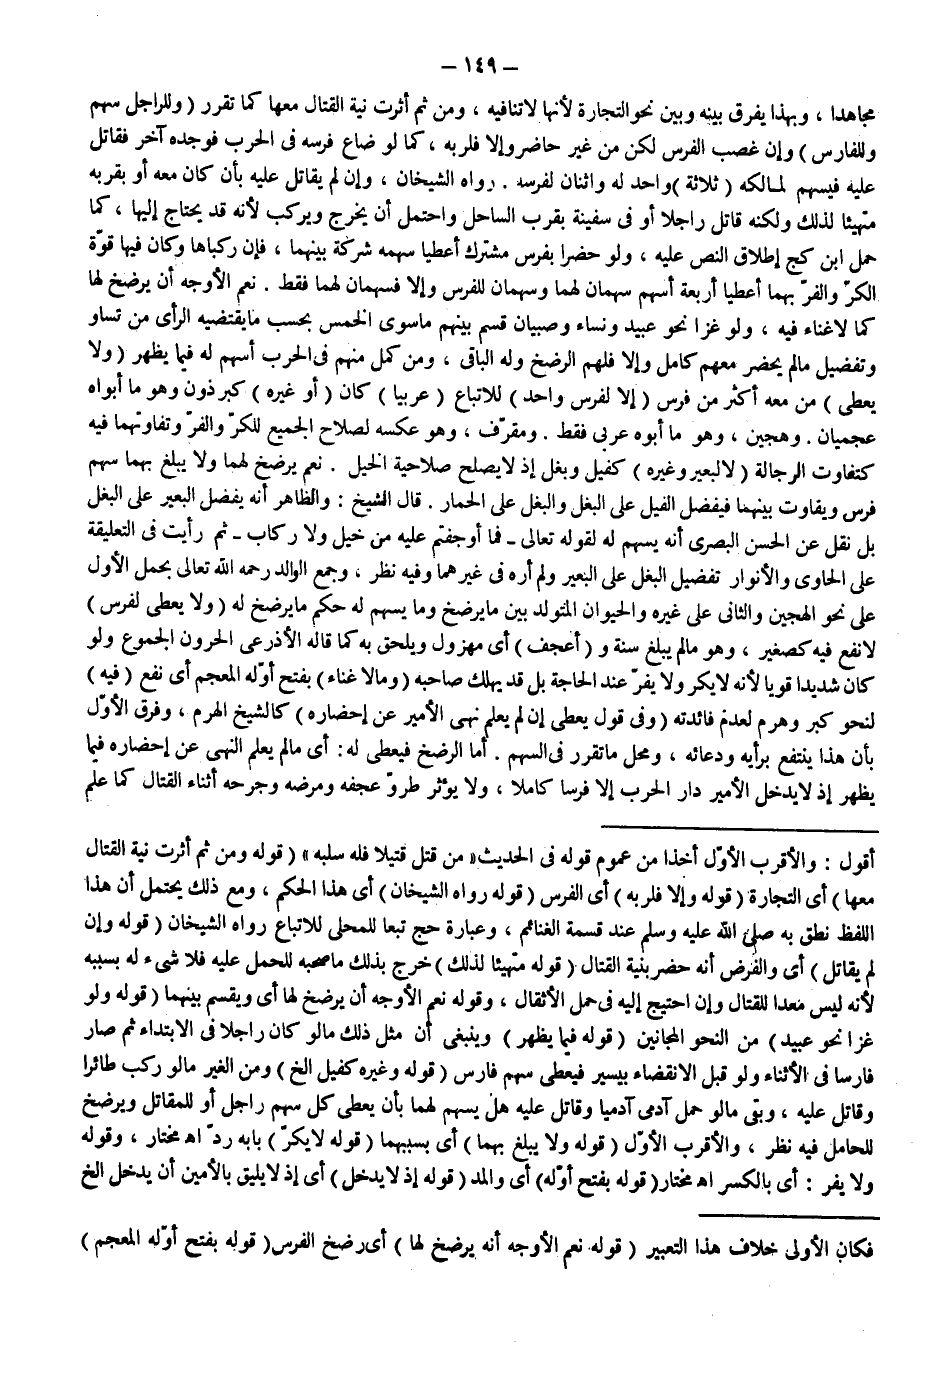 – ١٤٩ –
مجاهدا ، وبهذا يفرق بينه وبين نحو التجارة لأنها لاتنافيه ، ومن ثم أثرت نية القتال معها كما تقرر ( وللراجل سهم
وللفارس ) وإن غصب الفرس لكن من غير حاضر وإلا فلربه ، كما لو ضاع فرسه فى الحرب فوجده آخر فقاتل
عليه فيسهم لمالكه ( ثلاثة ) واحد له واثنان لفرسه . رواه الشيخان ، وإن لم يقاتل عليه بأن كان معه أو بقربه
متهيئا لذلك ولكنه قاتل راجلا أو فى سفينة بقرب الساحل واحتمل أن يخرج ويركب لأنه قد يحتاج إليها ، كما
حمل ابن كج إطلاق النص عليه ، ولو حضرا بفرس مشترك أعطيا سهمه شركة بينهما ، فإن ركباها وكان فيها قوّة
الكرّ والفرّ بهما أعطيا أربعة أسهم سهمان لهما وسهمان للفرس وإلا فسهمان لهما فقط . نعم الأوجه أن يرضخ لها
كما لاغناء فيه ، ولو غزا نحو عبيد ونساء وصبيان قسم بينهم ماسوى الخمس بحسب مايقتضيه الرأى من تساو
وتفضيل مالم يحضر معهم كامل وإلا فلهم الرضخ وله الباقى ، ومن كمل منهم فى الحرب أسهم له فيما يظهر ( ولا
يعطى ) من معه أكثر من فرس ( إلا لفرس واحد ) للاتباع ( عربيا ) كان ( أو غيره ) كبرذون وهو ما أبواه
عجميان . وهجين ، وهو ما أبوه عربى فقط . ومقرّف ، وهو عكسه لصلاح الجميع للكرّ والفرّ وتفاوتهما فيه
كتفاوت الرجالة ( لالبعير وغيره ) كفيل وبغل إذ لايصلح صلاحية الخيل . نعم يرضخ لهما ولا يبلغ بهما سهم
فرس ويفاوت بينهما فيفضل الفيل على البغل والبغل على الحمار . قال الشيخ : والظاهر أنه يفضل البعير على البغل
بل نقل عن الحسن البصرى أنه يسهم له لقوله تعالى ـ فما أوجفتم عليه من خيل ولا ركاب ـ ثم رأيت فى التعليقة
على الحاوى والأنوار تفضيل البغل على البعير ولم أره فى غيرهما وفيه نظر ، وجمع الوالد رحمه الله تعالى بحمل الأول
على نحو الهجين والثانى على غيره والحيوان المتولد بين مايرضخ وما يسهم له حكم مايرضخ له ( ولا يعطى لفرس )
لانفع فيه كصغير ، وهو مالم يبلغ سنة و ( أعجف ) أى مهزول ويلحق به كما قاله الأذرعى الحرون الجموع ولو
كان شديدا قويا لأنه لايكر ولا يفرّ عند الحاجة بل قد يهلك صاحبه ( ومالا غناء ) بفتح أوّله المعجم أى نفع ( فيه )
لنحو كبر وهرم لعدم فائدته ( وفى قول يعطى إن لم يعلم نهى الأمير عن إحضاره ) كالشيخ الهرم ، وفرق الأوّل
بأن هذا ينتفع برأيه ودعائه ، ومحل ماتقرر فى السهم . أما الرضخ فيعطى له : أى مالم يعلم النهى عن إحضاره فيما
يظهر إذ لايدخل الأمير دار الحرب إلا فرسا كاملا ، ولا يؤثر طروّ عجفه ومرضه وجرحه أثناء القتال كما علم
أقول : والأقرب الأوّل أخذا من عموم قوله فى الحديث « من قتل قتيلا فله سلبه » ( قوله ومن ثم أثرت نية القتال
معها ) أى التجارة ( قوله وإلا فلربه ) أى الفرس ( قوله رواه الشيخان ) أى هذا الحكم ، ومع ذلك يحتمل أن هذا
اللفظ نطق به صلى الله عليه وسلم عند قسمة الغنائم ، وعبارة حج تبعا للمحلى للاتباع رواه الشيخان ( قوله وإن
لم يقاتل ) أى والفرض أنه حضر بنية القتال ( قوله متهيئا لذلك ) خرج بذلك ماصحبه للحمل عليه فلا شىء له بسببه
لأنه ليس معدا للقتال وإن احتيج إليه فى حمل الأثقال ، وقوله نعم الأوجه أن يرضخ لها أى ويقسم بينهما ( قوله ولو
غزا نحو عبيد ) من النحو المجانين ( قوله فيما يظهر ) وينبغى أن مثل ذلك مالو كان راجلا فى الابتداء ثم صار
فارسا فى الأثناء ولو قبل الانقضاء بيسير فيعطى سهم فارس ( قوله وغيره كفيل الخ ) ومن الغير مالو ركب طائرا
وقاتل عليه ، وبقى مالو حمل آدمى آدميا وقاتل عليه هل يسهم لهما بأن يعطى كل سهم راجل أو للمقاتل ويرضخ
للحامل فيه نظر ، والأقرب الأوّل ( قوله ولا يبلغ بهما ) أى بسببهما ( قوله لايكرّ ) بابه ردّ اه مختار ، وقوله
ولا يفر : أى بالكسر اه مختار ( قوله بفتح أوّله ) أى والمد ( قوله إذ لايدخل ) أى إذ لايليق بالأمين أن يدخل الخ
فكان الأولى خلاف هذا التعبير ( قوله نعم الأوجه أنه يرضخ لها ) أى رضخ الفرس ( قوله بفتح أوّله المعجم )